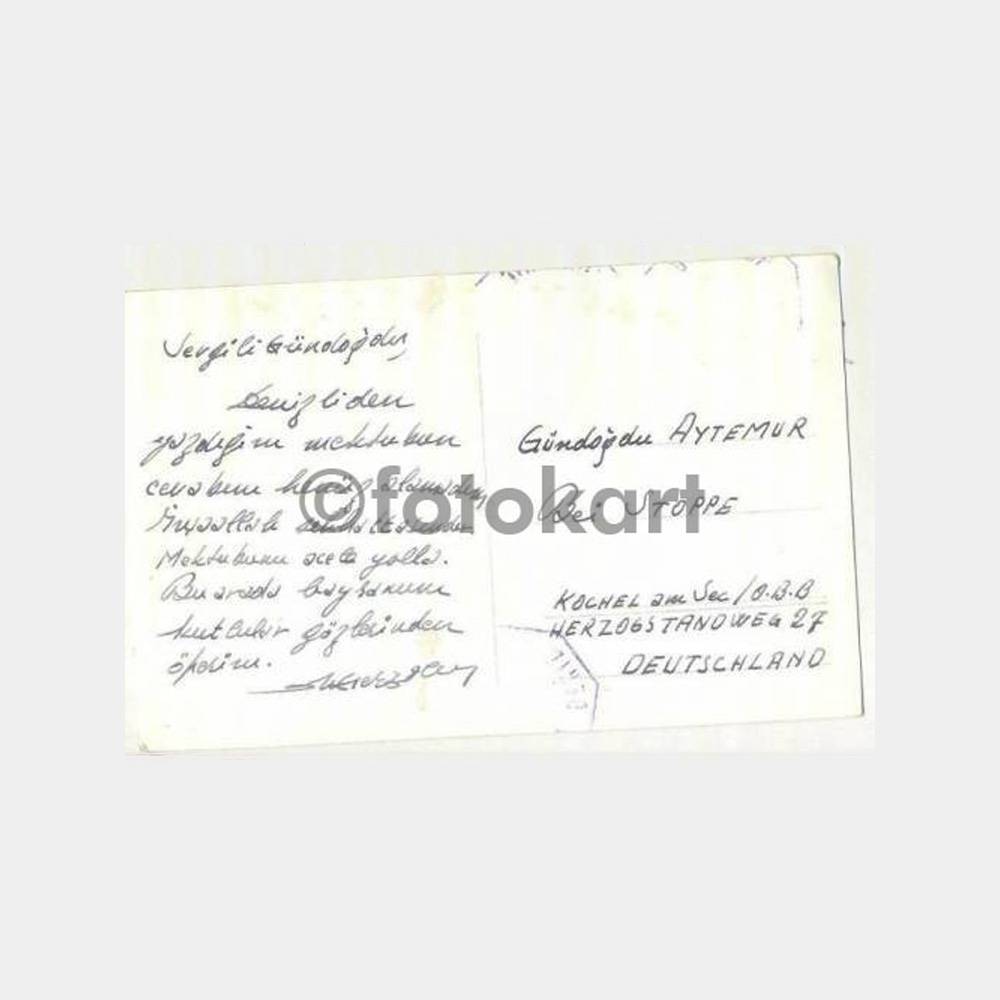 Sevgili Gündoğdu,
Denizliden
yazdığım mektubun
cevabını henüz alamadım,
İnşaallah
Mektubunu acele yolla.
Bu arada bayramını
kutlular gözlerinden
öperim.
Gündoğdu AYTEMUR
Bei STOPPE
KOCHEL am See/O.B.B
HERZOGSTANDWEG 27
DEUTSCHLAND
©fotokart